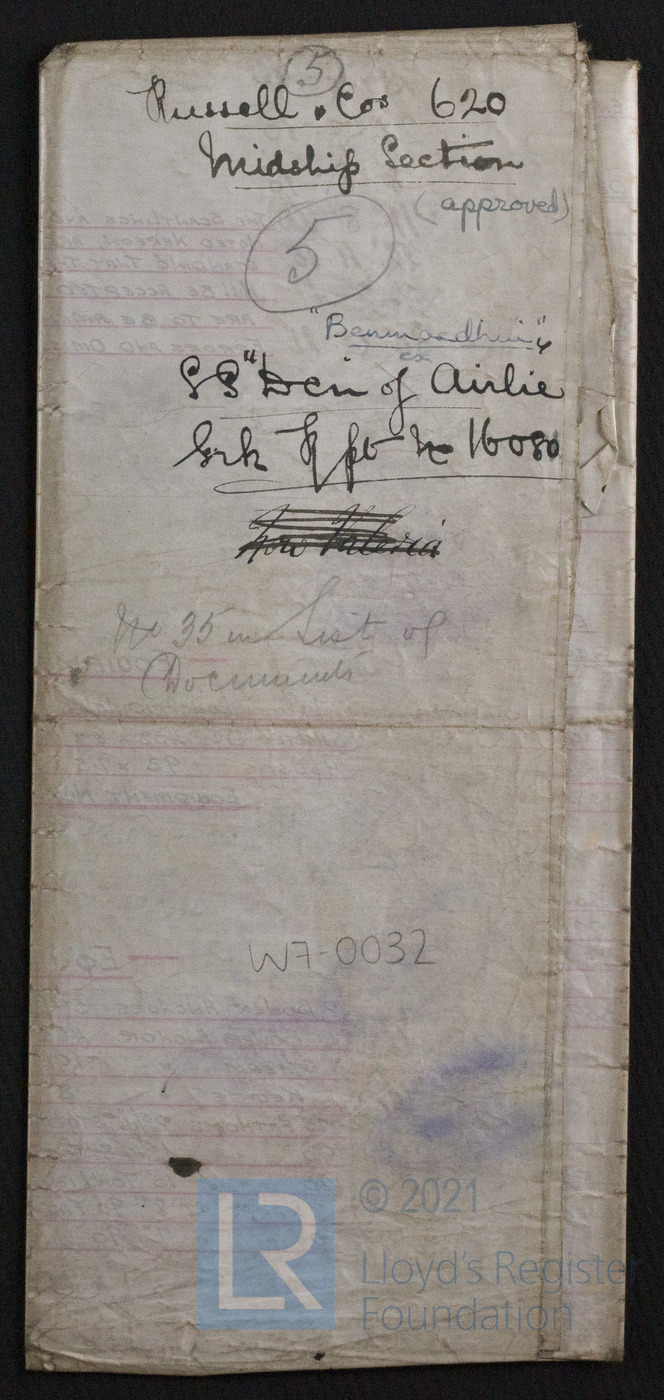 5
Russell & Cos 620
Midship Section
(approved)
5
"Benmacdhui"
ex
SS "Den of Airlie
Grk Rpt No 16080
Now Valeria
No 35 in List of
Documents
W7-0032
LR
© 2021
Lloyd's Register
Foundation